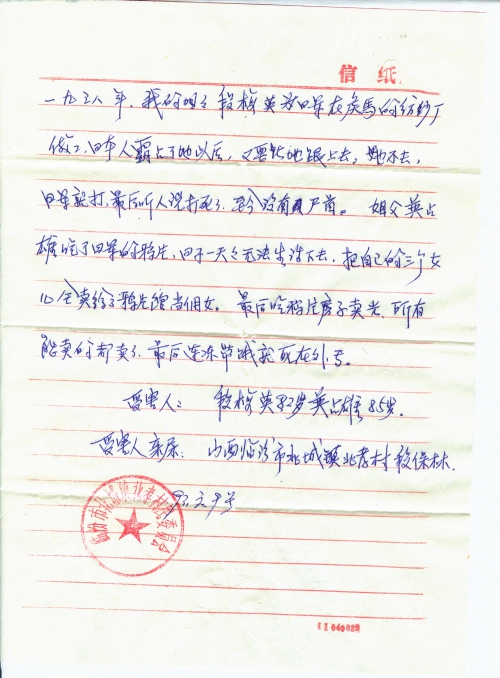 信 纸
一九三八年，我的姐姐段梅英为日军在侯马的纺纱厂
做工，日本人霸占了她以后，又要她跟上去，她不去，
日军就打，最后听人说打死了，至今没有见尸首。 姐父英占
雄吃了日军的鸦片，由于一天天无法生活下去，把自己的三个女
儿全卖给了鸦片馆当佣女。 最后吃鸦片房子卖光，所有
能卖的都卖了，最后连冻带饿死在外。
受害人： 段梅英82岁英占雄85岁。
受害人亲属： 山西临汾市北城镇北孝村段保林
93元9号
临汾市北城镇北孝村村民委员会
11040829